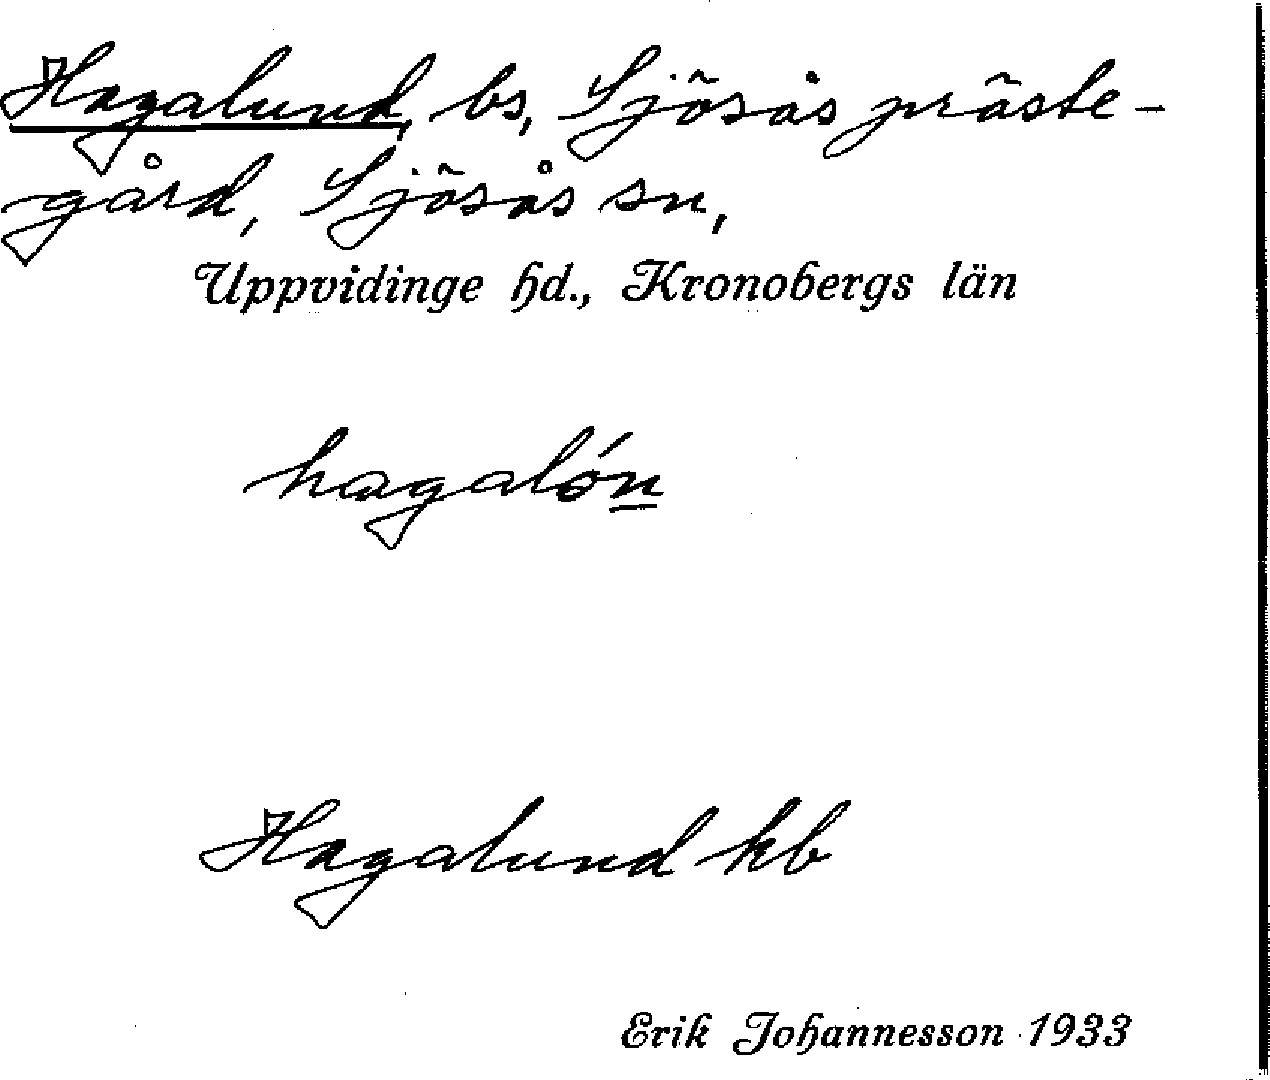 Hagalund, bs, Sjösås präste-
gård, Sjösås sn,
Uppvidinge hd., Kronobergs län
hagalón̲
Hagalund kb
Erik Johannesson 1933